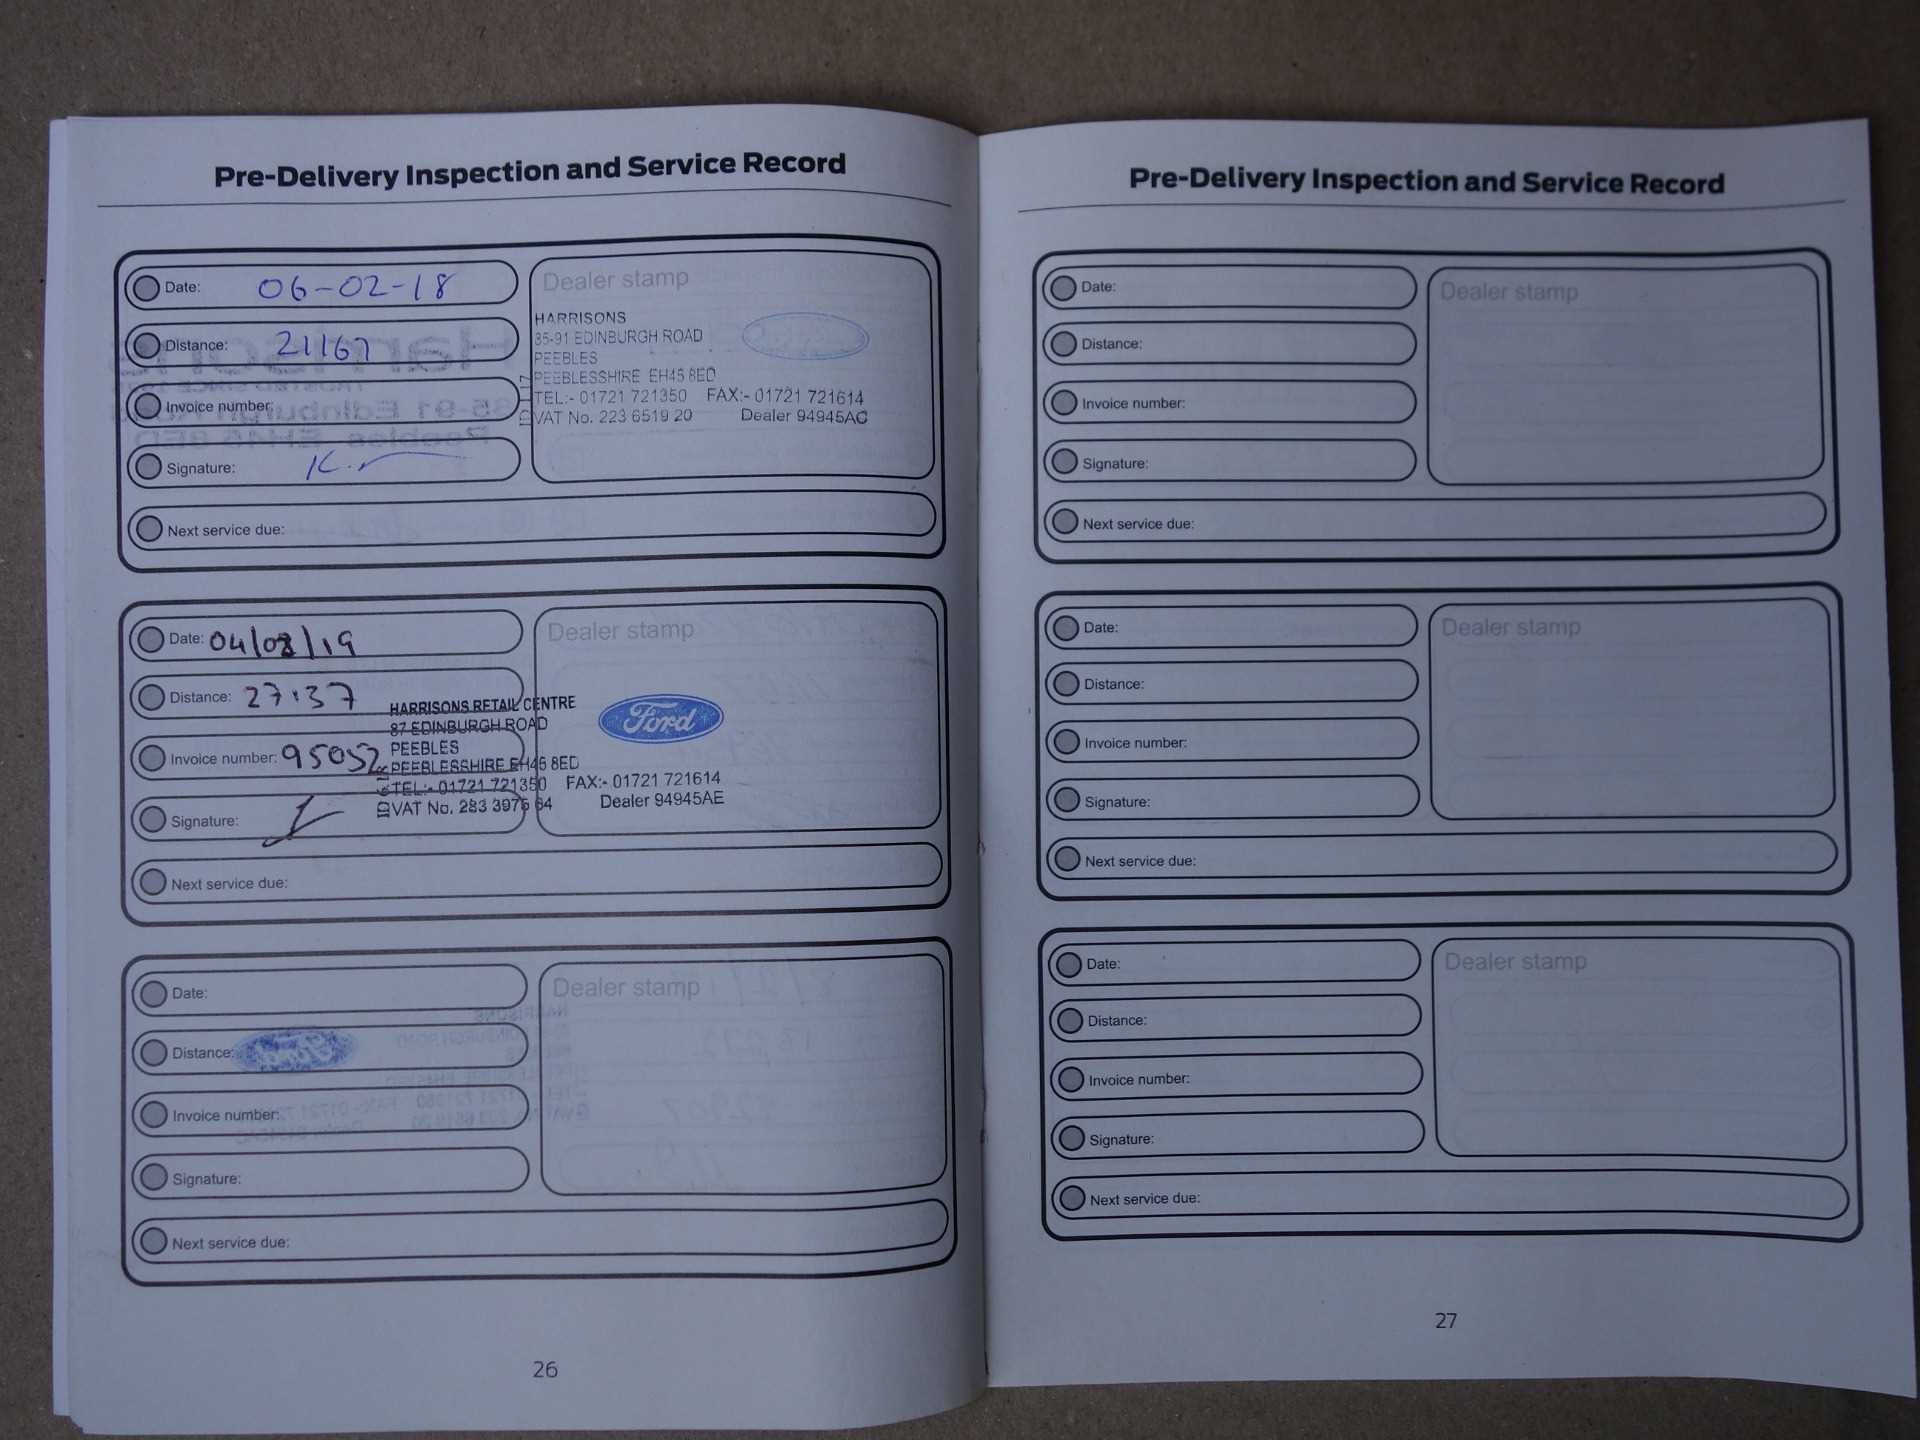 Pre-Delivery Inspection and Service Record
Date: 06-02-18
Distance: 21167
Invoice number:
Signature:
Dealer stamp
HARRISONS
85-91 EDINBURGH ROAD
PEEBLES
PEEBLESSHIRE EH45 8ED
TEL:- 01721 721350 FAX:- 01721 721614
VAT No. 223 6519 20 Dealer 94945AC
Next service due:
Date: 04/02/19
Distance: 27137
Invoice number: 95052
Signature:
Dealer stamp
HARRISONS RETAIL CENTRE
87 EDINBURGH ROAD
PEEBLES
PEEBLESSHIRE EH45 8ED
TEL:- 01721 721350 FAX:- 01721 721614
VAT No. 283 3975 64 Dealer 94945AE
Ford
Next service due:
Date:
Distance:
Invoice number:
Signature:
Dealer stamp
Next service due:
26
Pre-Delivery Inspection and Service Record
Date:
Distance:
Invoice number:
Signature:
Dealer stamp
Next service due:
Date:
Distance:
Invoice number:
Signature:
Dealer stamp
Next service due:
Date:
Distance:
Invoice number:
Signature:
Dealer stamp
Next service due:
27